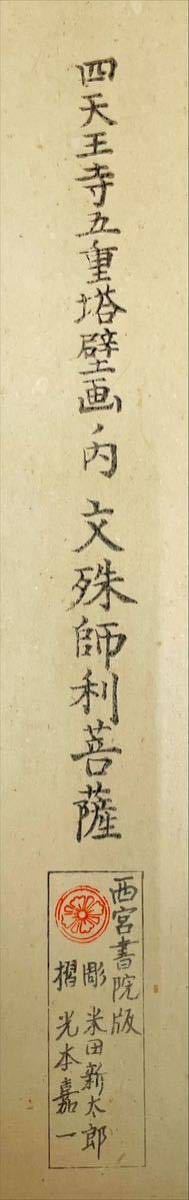 四天王寺五重塔壁画ノ内 文殊師利菩薩
西宮書院版
彫 米田新太郎
摺 光本嘉一